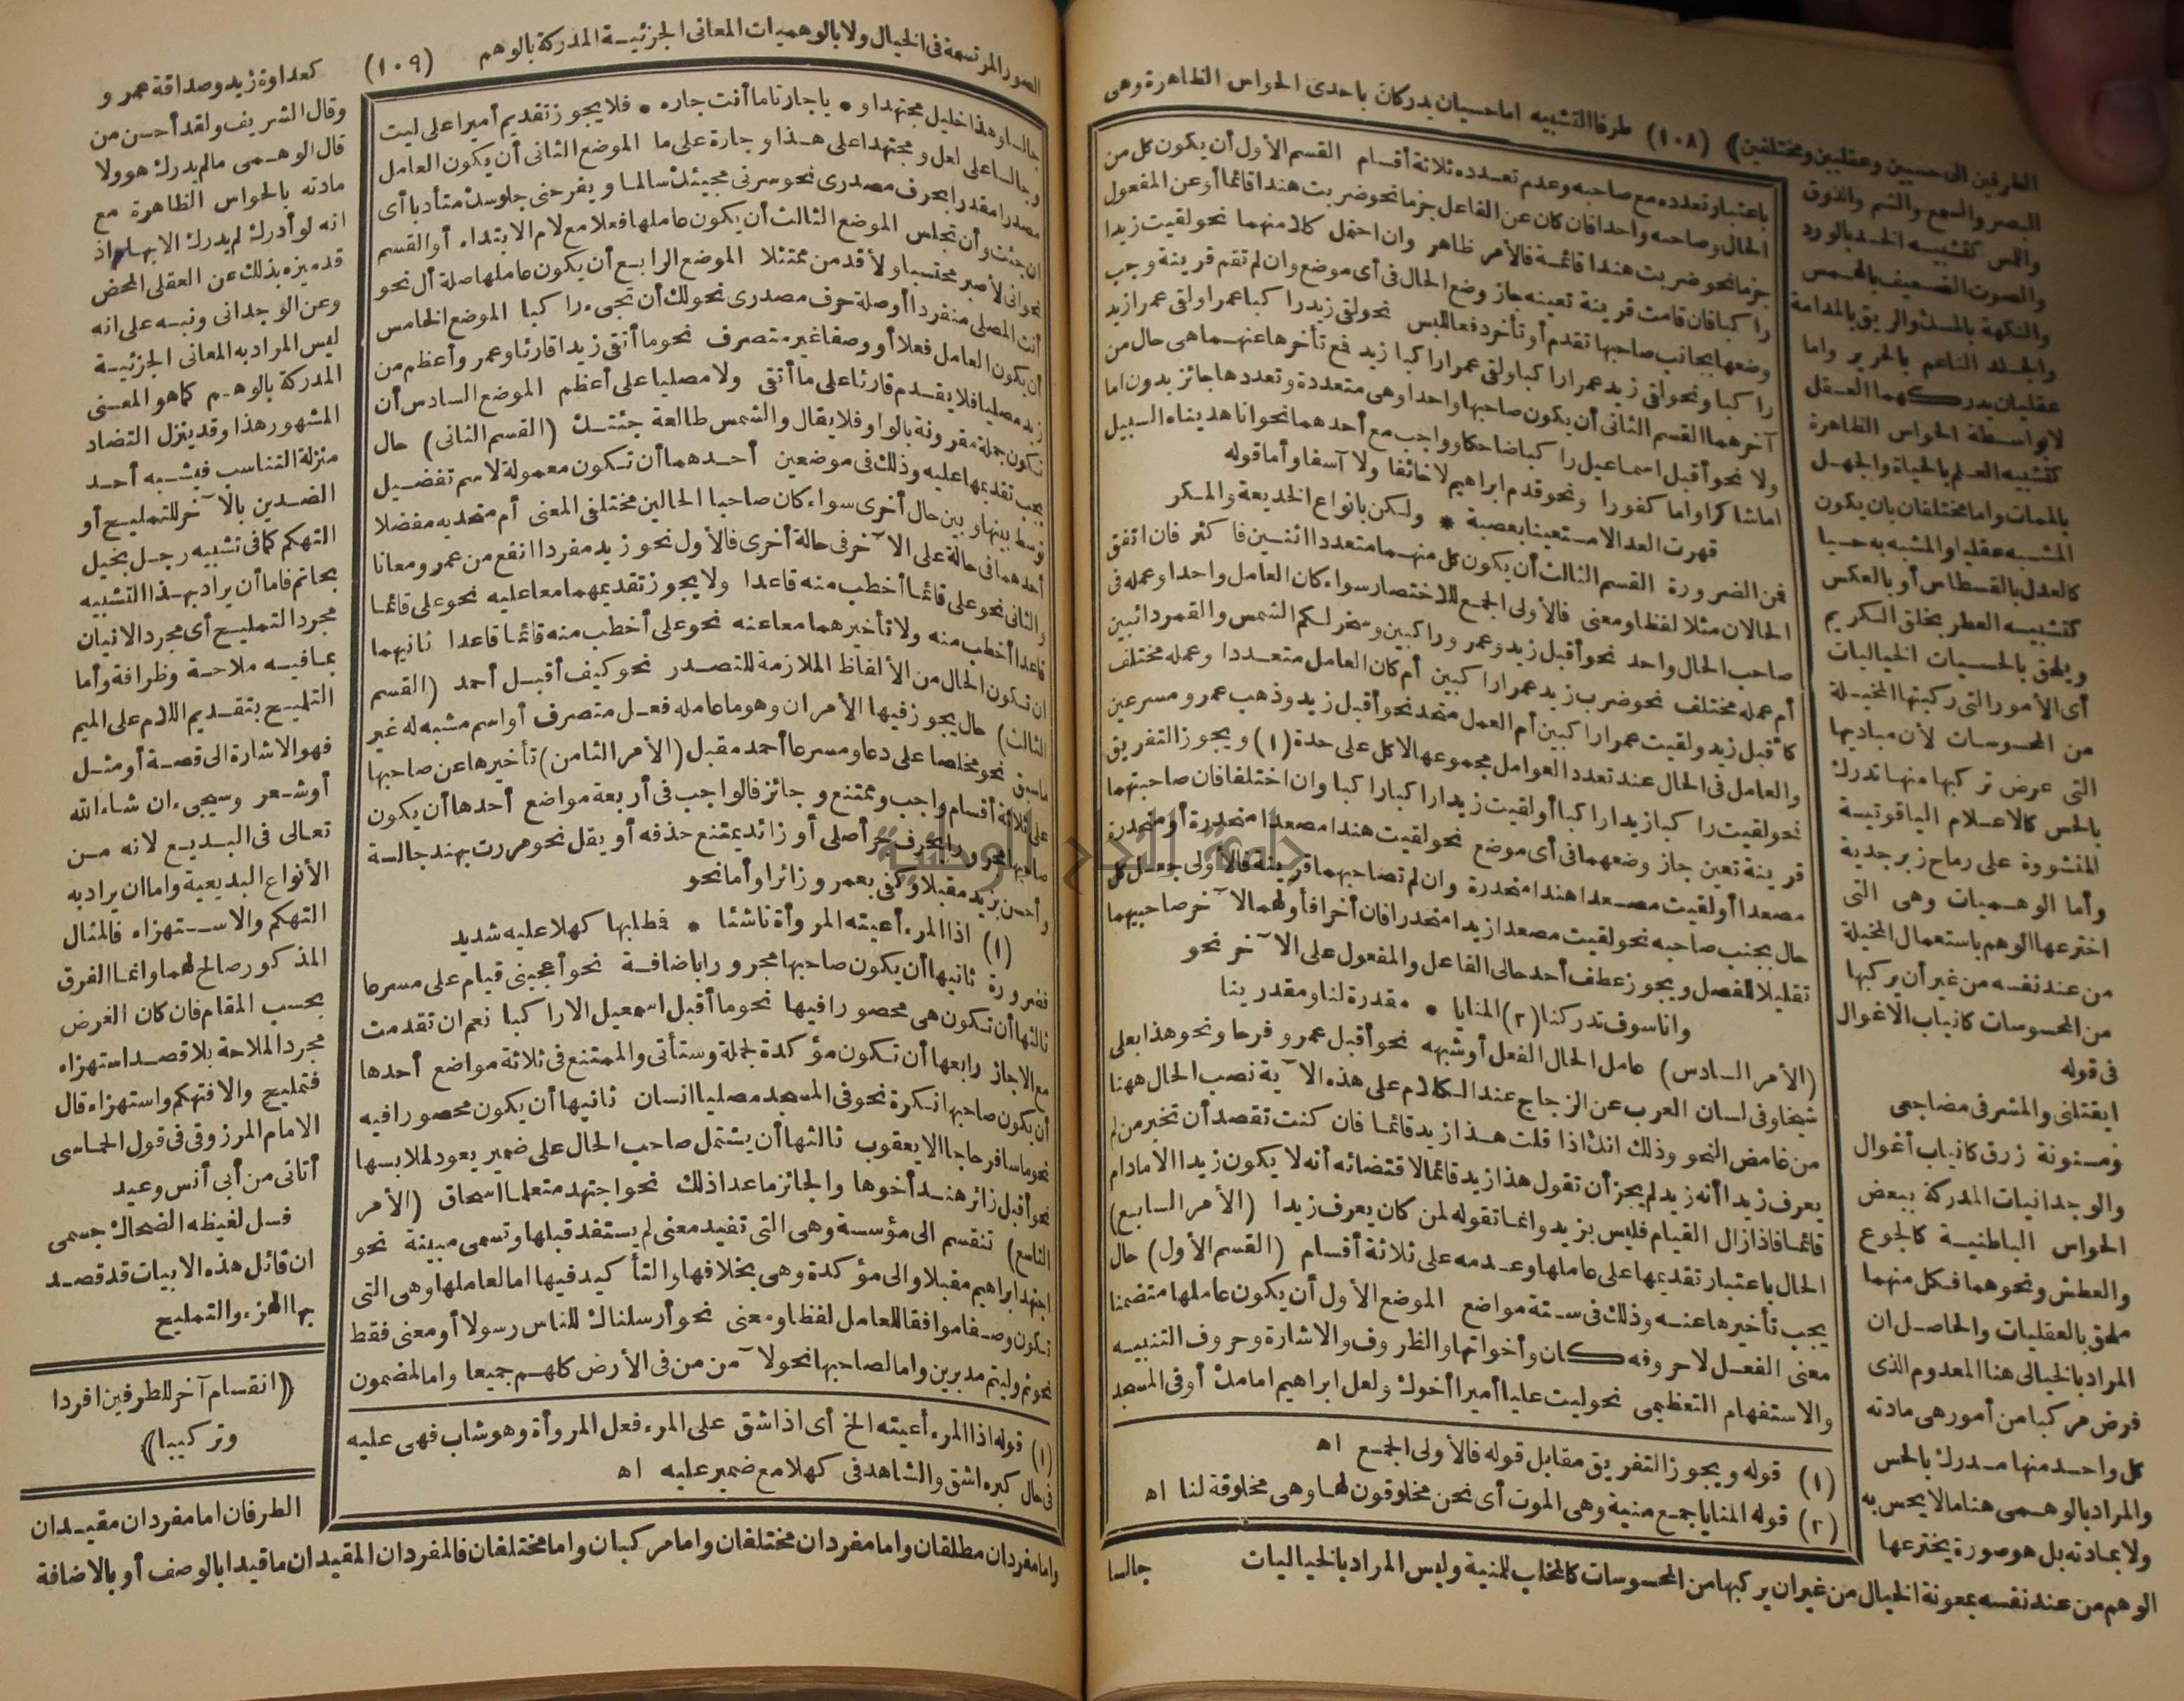 الطرفين الى حسيين وعقليين ومختلفين) (١٠٨) طرفا التشبيه اما حسيان يدركان باحدى الحواس الظاهرة وهى
البصر والسمع والشم والذوق
واللمس كتشبيه الخد بالورد
والصوت الضعيف بالهمس
والنكهة بالمسك والريق بالمدامة
والجلد الناعم بالحرير واما
عقليان يدركهما العقل
لا بواسطة الحواس الظاهرة
كتشبيه العلم بالحياة والجهل
بالممات واما مختلفان بان يكون
المشبه عقليا والمشبه به حسيا
كالعدل بالقسطاس أو بالعكس
كتشبيه العطر بخلق الكريم
ويلحق بالحسيات الخياليات
أى الأمور التى ركبتها المخيلة
من المحسوسات لأن مباديها
التى عرض تركبها منها تدرك
بالحس كالاعلام الياقوتية
المنشورة على رماح زبرجدية
وأما الوهميات وهى التى
اخترعها الوهم باستعمال المخيلة
من عند نفسه من غير أن يركبها
من المحسوسات كانياب الاغوال
فى قوله
ايقتلنى والمشرفى مضاجعى
ومسنونة زرق كانياب أغوال
والوجدانيات المدركة ببعض
الحواس الباطنية كالجوع
والعطش ونحوهما فكل منهما
ملحق بالعقليات والحاصل ان
المراد بالخيالى هنا المعدوم الذى
فرض مركبا من أمور هى مادته
كل واحد منها مدرك بالحس
والمراد بالوهمى هنا مالا يحس به
ولا بمادته بل هو صورة يخترعها
الوهم من عند نفسه بمعونة الخيال من غير ان يركبها من المحسوسات كالمخالب للمنية وليس المراد بالخياليات
باعتبار تعدده مع صاحبه وعدم تعدده ثلاثة أقسام القسم الأول أن يكون كل من
الحال وصاحبه واحدا فان كان عن الفاعل جزما نحو ضربت هندا قائما أو عن المفعول
جزما نحو ضربت هندا قائمة فالأمر ظاهر وان احتمل كلا منهما نحو لقيت زيدا
راكبا فان قامت قرينة تعينه جاز وضع الحال فى أى موضع وان لم تقم قرينة وجب
وضعها بجانب صاحبها تقدم أو تأخر دفعا للبس نحو لقى زيد راكبا عمرا ولقى عمرا زيد
راكبا ونحو لقى زيد عمرا راكبا ولقى عمرا راكبا زيد فع تأخرها عنهما هى حال من
آخرهما القسم الثانى أن يكون صاحبها واحدا وهى متعددة وتعددها جائز بدون اما
ولا نحو أقبل اسماعيل راكبا ضاحكا وواجب مع أحدهما نحو انا هديناه السبيل
اما شاكرا واما كفورا ونحو قدم ابراهيم لا خائفا ولا آسفا وأما قوله
قهرت العدا لا مستعينا بعصبة * ولكن بانواع الخديعة والمكر
فمن الضرورة القسم الثالث أن يكون كل منهما متعددا اثنين فا كثر فان اتفق
الحالان مثلا لفظا ومعنى فالأولى الجمع للاختصار سواء كان العامل واحدا وعمله فى
صاحب الحال واحد نحو أقبل زيد وعمرو راكبين وسخر لكم الشمس والقمر دائبين
أم عمله مختلف نحو ضرب زيد عمرا راكبين أم كان العامل متعددا وعمله مختلف
كأقبل زيد ولقيت عمرا راكبين أم العمل متحد نحو أقبل زيد وذهب عمرو مسرعين
والعامل فى الحال عند تعدد العوامل مجموعها لا كل على حدة (١) ويجوز التفريق
نحو لقيت راكبا زيدا راكبا أو لقيت زيدا راكبا راكبا وان اختلفا فان صاحبتهما
قرينة تعين جاز وضعهما فى أى موضع نحو لقيت هندا مصعدا منحدرة أو منحدرة
مصعدا أو لقيت مصعدا هندا منحدرة وان لم تصاحبهما قرينة فالأولى جعل كل
حال بجنب صاحبه نحو لقيت مصعدا زيدا منحدرا فان أخرا فأولهما لآخر صاحبيهما
تقليلا للفصل ويجوز عطف أحد حالى الفاعل والمفعول على الآخر نحو
وانا سوف تدركنا (٢) المنايا * مقدرة لنا ومقدرينا
(الأمر السادس) عامل الحال الفعل أو شبهه نحو أقبل عمرو فرحا ونحو هذا بعلى
شيخا وفى لسان العرب عن الزجاج عند الكلام على هذه الآية نصب الحال ههنا
من غامض النحو وذلك انك اذا قلت هذا زيد قائما فان كنت تقصد أن تخبر من لم
يعرف زيدا أنه زيد لم يجز أن تقول هذا زيد قائما لاقتضائه أنه لا يكون زيدا الا مادام
قائما فاذا زال القيام فليس بزيد وانما تقوله لمن كان يعرف زيدا (الأمر السابع)
الحال باعتبار تقديمها على عاملها وعدمه على ثلاثة أقسام (القسم الأول) حال
يجب تأخيرها عنه وذلك فى ستة مواضع الموضع الأول أن يكون عاملها متضمنا
معنى الفعل لا حروفه كان وأخواتها والظروف والاشارة وحروف التنبيه
والاستفهام التعظيمى نحو ليت عليا أميرا أخوك ولعل ابراهيم امامك أو فى المسجد
(١) قوله ويجوز التفريق مقابل قوله فالأولى الجمع اه
(٢) قوله المنايا جمع منية وهى الموت أى نحن مخلوقون لها وهى مخلوقة لنا اه
جالسا
الصور المرتسمة فى الخيال ولا بالوهميات المعانى الجزئية المدركة بالوهم (١٠٩) كعداوة زيد وصداقة عمرو
جالسا وهذا خليل مجتهدا و * ياجارتا ما أنت جاره * فلا يجوز تقديم أميرا على ليت
وجالسا على لعل ومجتهدا على هذا وجارة على ما الموضع الثانى أن يكون العامل
مصدرا مقدرا بحرف مصدرى نحو سرنى مجيئك سالما ويفرحنى جلوسك متأدبا أى
ان جئت وأن تجلس الموضع الثالث أن يكون عاملها فعلا مع لام الابتداء أو القسم
نحو انى لأصبر محتسبا ولأقدمن ممتثلا الموضع الرابع أن يكون عاملها صلة أل نحو
أنت المصلى منفردا أو صلة حرف مصدرى نحو لك أن تجىء راكبا الموضع الخامس
أن يكون العامل فعلا أو وصفا غير متصرف نحو ما أتقى زيدا قارئا وعمرو أعظم من
زيد مصليا فلا يقدم قارئا على ما أتقى ولا مصليا على أعظم الموضع السادس أن
تكون جملة مقرونة بالواو فلا يقال والشمس طالعة جئتك (القسم الثانى) حال
يجب تقديمها عليه وذلك فى موضعين أحدهما أن تكون معمولة لاسم تفضيل
توسط بينها وبين حال أخرى سواء كان صاحبا الحالين مختلفى المعنى أم متحديه مفضلا
أحدهما فى حالة على الآخر فى حالة أخرى فالأول نحو زيد مفردا انفع من عمرو معانا
والثانى نحو على قائما أخطب منه قاعدا ولا يجوز تقديمهما معا عليه نحو على قائما
قاعدا أخطب منه ولا تأخيرهما معا عنه نحو على أخطب منه قائما قاعدا ثانيهما
ان تكون الحال من الألفاظ الملازمة للتصدر نحو كيف أقبل أحمد (القسم
الثالث) حال يجوز فيها الأمران وهو ما عامله فعل متصرف أو اسم مشبه له غير
ما سبق نحو مخلصا على دعا ومسرعا أحمد مقبل (الأمر الثامن) تأخيرها عن صاحبها
على ثلاثة أقسام واجب وممتنع وجائز فالواجب فى أربعة مواضع أحدها أن يكون
صاحبها مجرورا بحرف جر أصلى أو زائد يمتنع حذفه أو يقل نحو مررت بهند جالسة
وأحسن بزيد مقبلا وكفى بعمرو زائرا وأما نحو
(١) اذا المرء أعيته المروأة ناشئا * فمطلبها كهلا عليه شديد
فضرورة ثانيها أن يكون صاحبها مجرورا باضافة نحو أعجبنى قيام على مسرعا
ثالثها أن تكون هى محصورا فيها نحو ما أقبل اسمعيل الا راكبا نعم ان تقدمت
مع الا جاز رابعها أن تكون مؤكدة لجملة وستأتى والممتنع فى ثلاثة مواضع أحدها
أن يكون صاحبها نكرة نحو فى المسجد مصليا انسان ثانيها أن يكون محصورا فيه
نحو ما سافر حاجا الا يعقوب ثالثها أن يشتمل صاحب الحال على ضمير يعود لملابسها
نحو أقبل زائر هند أخوها والجائز ما عدا ذلك نحو اجتهد متعلما اسحاق (الأمر
التاسع) تنقسم الى مؤسسة وهى التى تفيد معنى لم يستفد قبلها وتسمى مبينة نحو
اجتهد ابراهيم مقبلا والى مؤكدة وهى بخلافها والتأكيد فيها اما لعاملها وهى التى
تكون وصفا موافقا للعامل لفظا ومعنى نحو أرسلناك للناس رسولا أو معنى فقط
نحو ثم وليتم مدبرين واما لصاحبها نحو لآمن من فى الأرض كلهم جميعا واما لمضمون
(١) قوله اذا المرء أعيته الخ أى اذا شق على المرء فعل المروأة وهو شاب فهى عليه
فى حال كبره اشق والشاهد فى كهلا مع ضمير عليه اه
وقال الشريف ولقد أحسن من
قال الوهمى مالم يدرك هو ولا
مادته بالحواس الظاهرة مع
انه لو أدرك لم يدرك الا بها اذ
قد ميزه بذلك عن العقلى المحض
وعن الوجدانى ونبه على انه
ليس المراد به المعانى الجزئية
المدركة بالوهم كما هو المعنى
المشهور هذا وقد ينزل التضاد
منزلة التناسب فيشبه أحد
الضدين بالآخر للتمليح أو
التهكم كما فى تشبيه رجل بخيل
بحاتم فاما أن يراد بهذا التشبيه
مجرد التمليح أى مجرد الاتيان
بما فيه ملاحة وظرافة وأما
التلميح بتقديم اللام على الميم
فهو الاشارة الى قصة أو مثل
أو شعر وسيجىء ان شاء الله
تعالى فى البديع لانه من
الأنواع البديعية واما ان يراد به
التهكم والاستهزاء فالمثال
المذكور صالح لهما وانما الفرق
بحسب المقام فان كان الغرض
مجرد الملاحة بلا قصد استهزاء
فتمليح والا فتهكم واستهزاء قال
الامام المرزوقى فى قول الحماسى
أتانى من أبى أنس وعيد
فسل لغيظه الضحاك جسمى
ان قائل هذه الابيات قد قصد
بها الهزء والتمليح
(انقسام آخر للطرفين افردا
وتركيبا)
الطرفان اما مفردان مقيدان
واما مفردان مطلقان واما مفردان مختلفان واما مركبان واما مختلفان فالمفردان المقيدان ما قيدا بالوصف أو بالاضافة
جامعة النجاح الوطنية